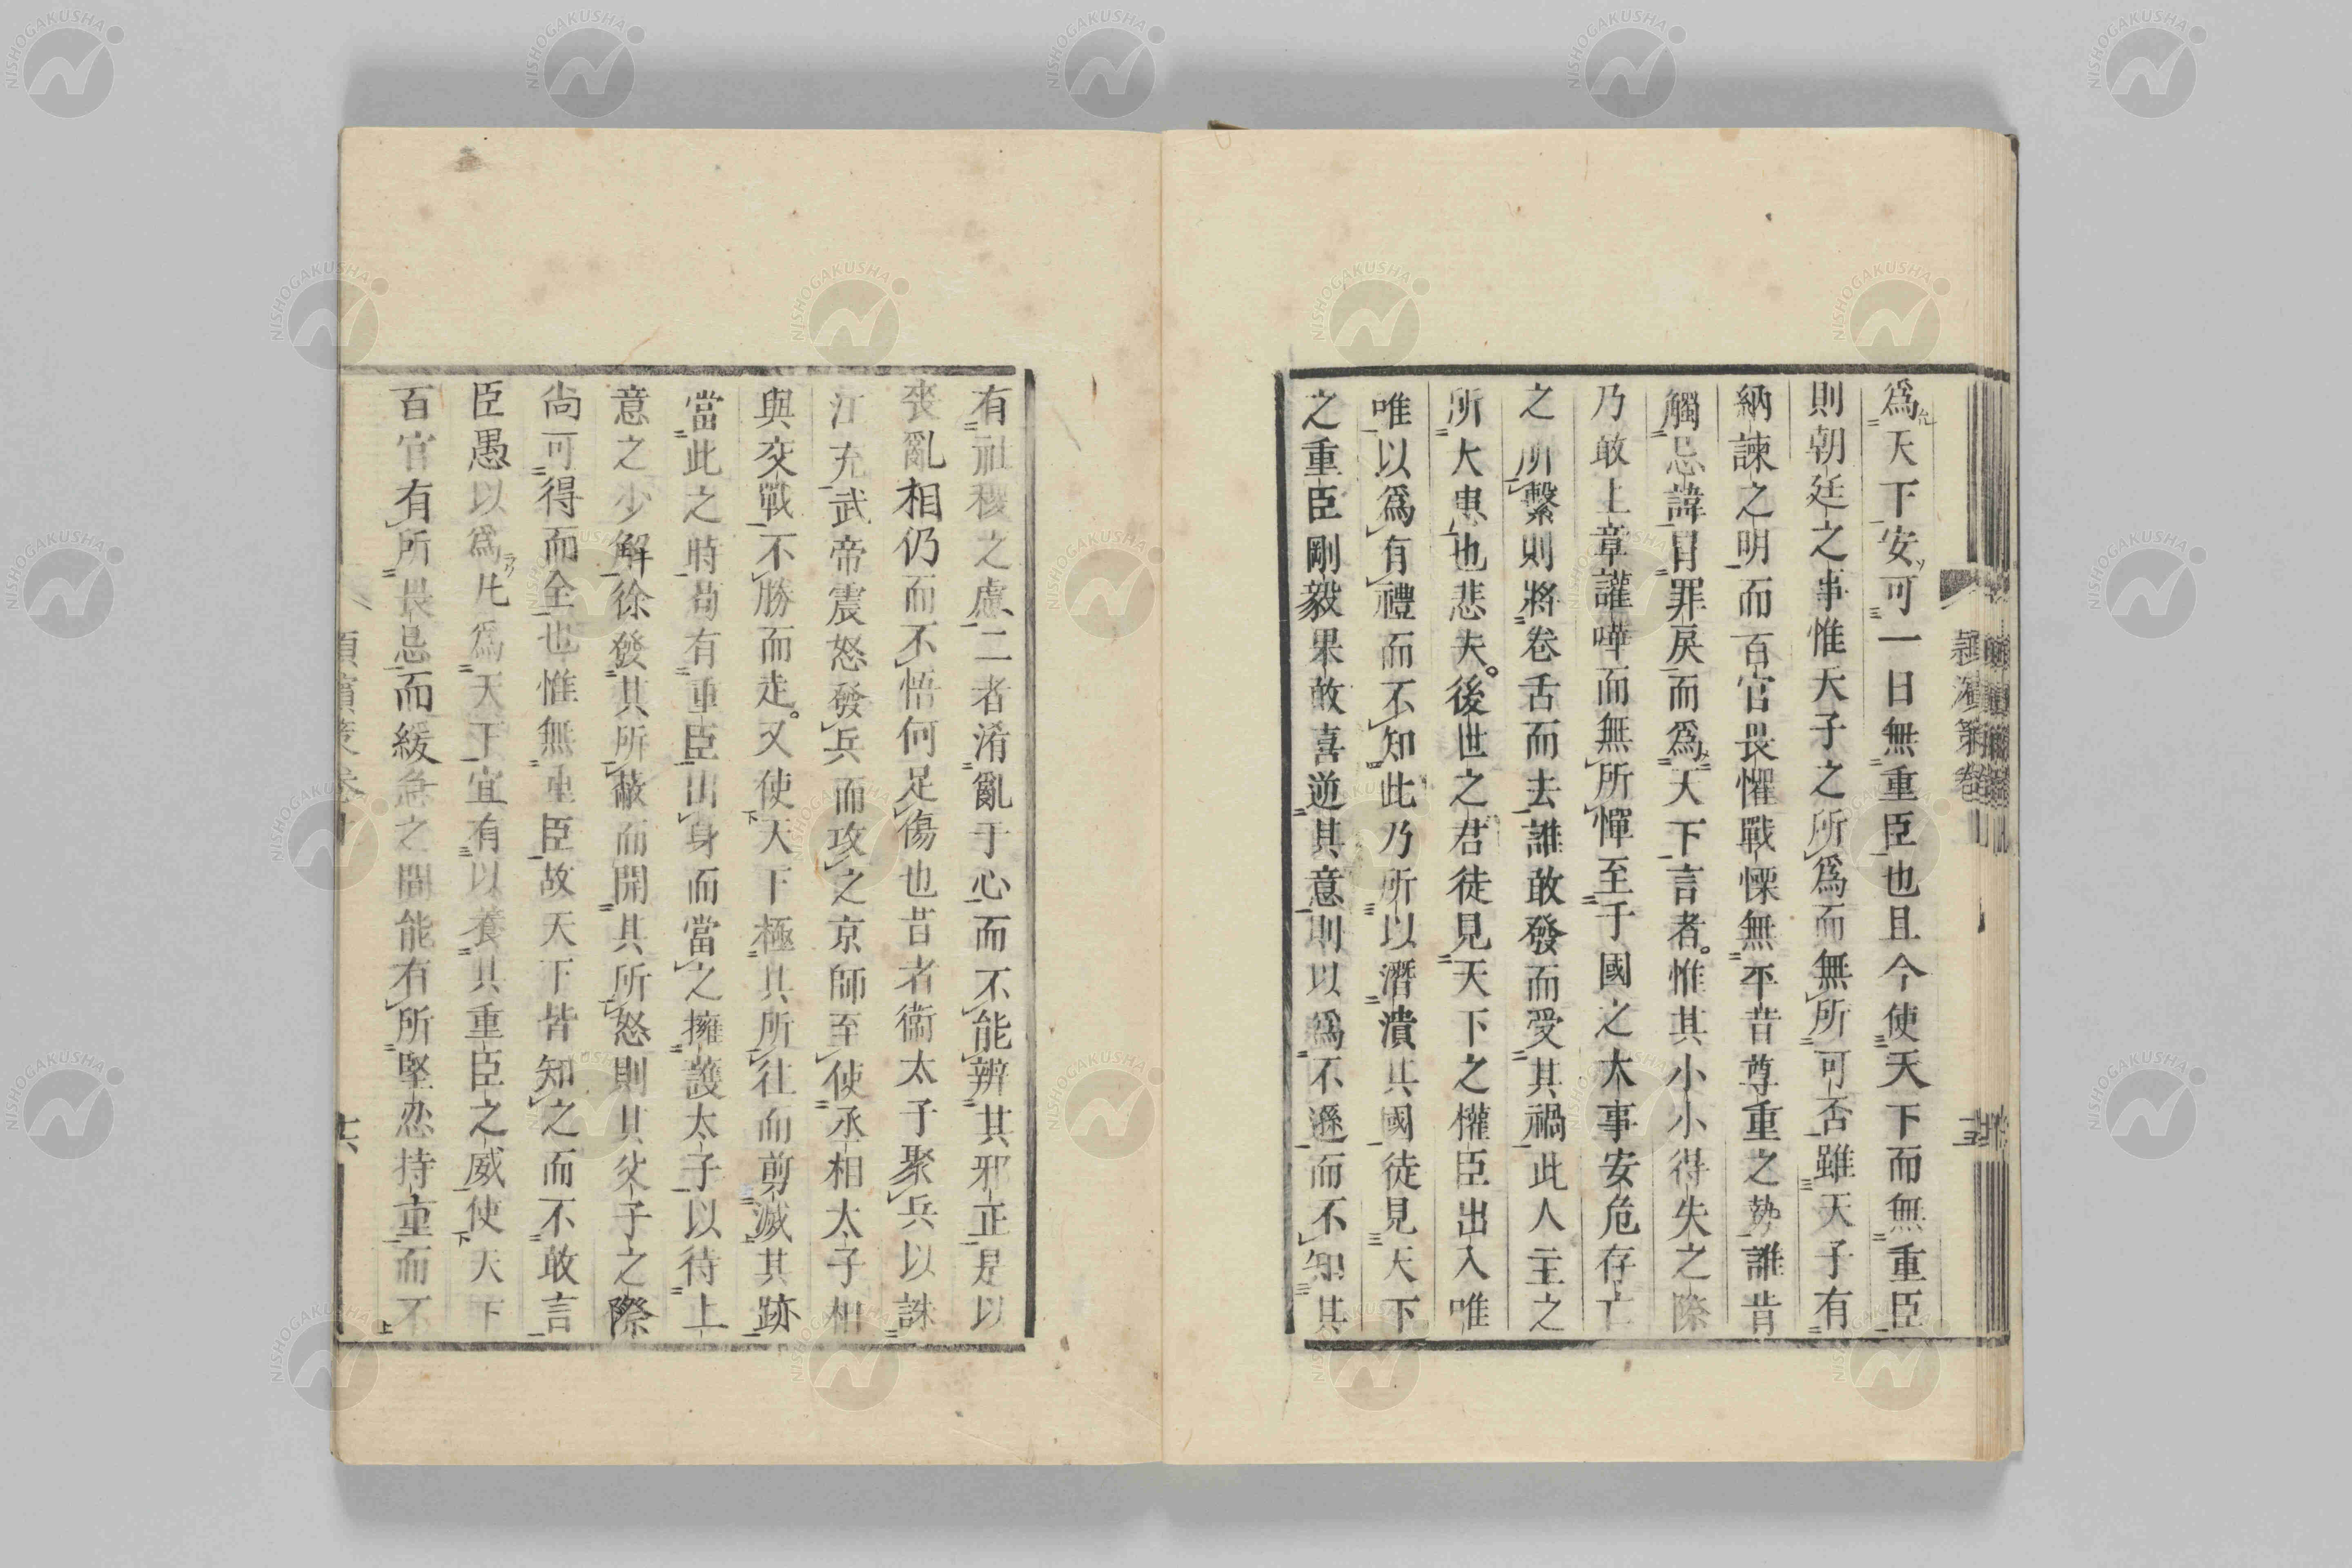 爲天下安可一日無重臣也且今使天下而無重臣
則朝廷之事惟天子之所爲而無所可否雖天子有
納諫之明而百官畏懼戰慄無平昔尊重之勢誰肯
觸忌諱冒罪戾而爲天下言者惟其小小得失之際
乃敢上章讙嘩而無所憚至于國之大事安危存亡
之所繫則將卷舌而去誰敢發而受其禍此人主之
所大患也悲夫後世之君徒見天下之權臣出入唯
唯以爲有禮而不知此乃所以潛潰其國徒見天下
之重臣剛毅果敢喜逆其意則以爲不遜而不知其
有社稷之慮二者淆亂于心而不能辨其邪正是以
喪亂相仍而不悟何足傷也昔者衛太子聚兵以誅
江充武帝震怒發兵而攻之京師至使丞相太子相
與交戰不勝而走又使天下極其所往而剪滅其跡
當此之時苟有重臣出身而當之擁護太子以待上
意之少解徐發其所蔽而開其所怒則其父子之際
尙可得而全也惟無重臣故天下皆知之而不敢言
臣愚以爲凡爲天下宜有以養其重臣之威使天下
百官有所畏忌而緩急之間能有所堅忍持重而不
穎濱策卷
NISHOGAKUSHA